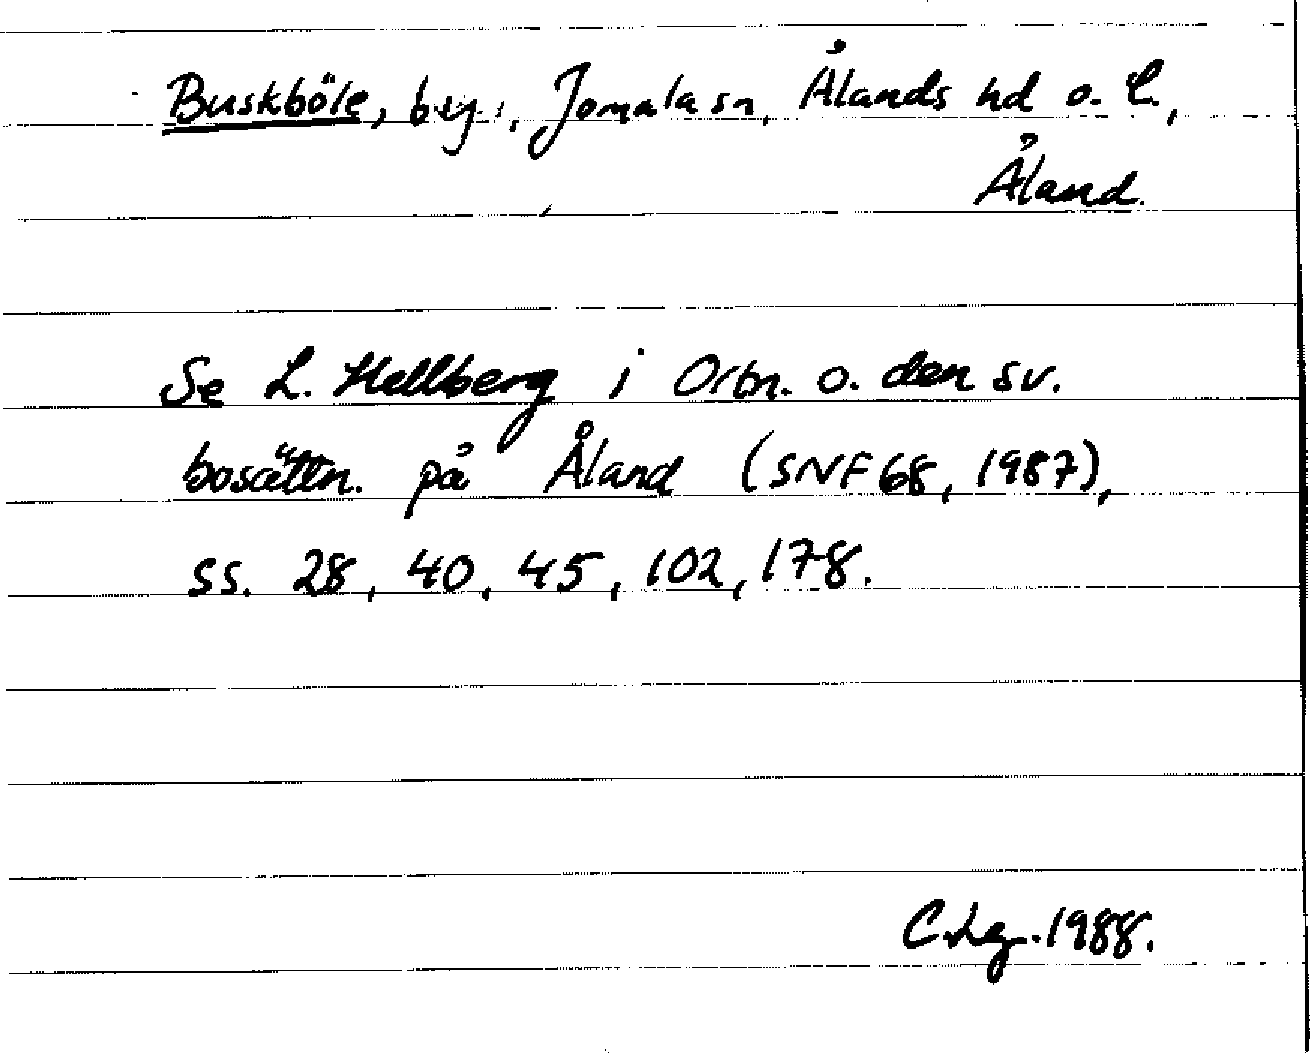 Buskböle, by, Jomala sn, Ålands hd o. L.,
Åland.
Se L. Hellberg i Ortn. o. den sv.
bosättn. på Åland (SNF 68, 1987),
ss. 28, 40, 45, 102, 178.
C.Lg. 1988.